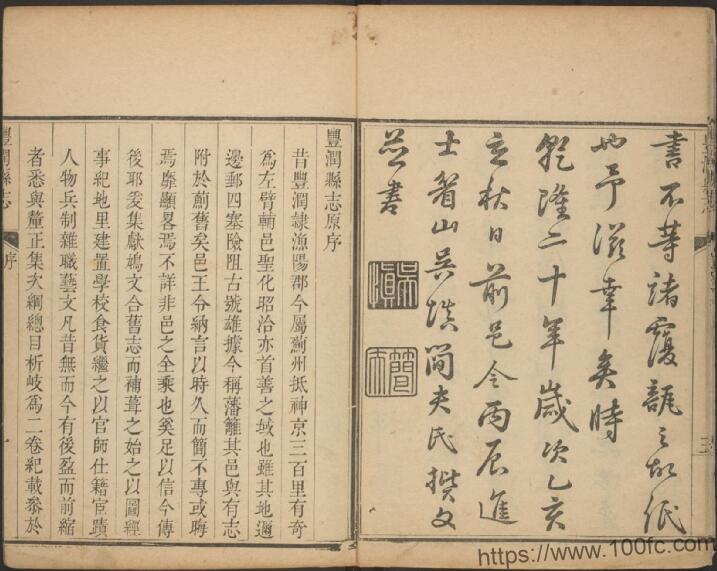 書不等諸覆瓿之故紙
也予滋幸矣時
乾隆二十年歲次乙亥
立秋日前邑令丙辰進
士眉山吳慎簡夫氏撰文
並書
吳慎
豐潤縣志原序
昔豐潤隷漁陽郡今屬薊州抵神京三百里有奇
為左臂輔邑聖化昭洽亦首善之域也雖其地邇
邊鄙四塞險阻古號雄據今稱藩籬其邑與有志
附於薊舊矣邑王令納言以時久而簡不專或晦
焉靡顯畧焉不詳非邑之全乘也奚足以信今傳
後耶爰集獻鳩文合舊志而補葺之始之以圖經
事紀地里建置學校食貨繼之以官師仕籍宦蹟
人物兵制雜職藝文凡昔無而今有後盈而前縮
者悉與釐正集次綱總目析岐為二卷紀載叅於
豐潤縣志
序
一
https://www.100fc.com